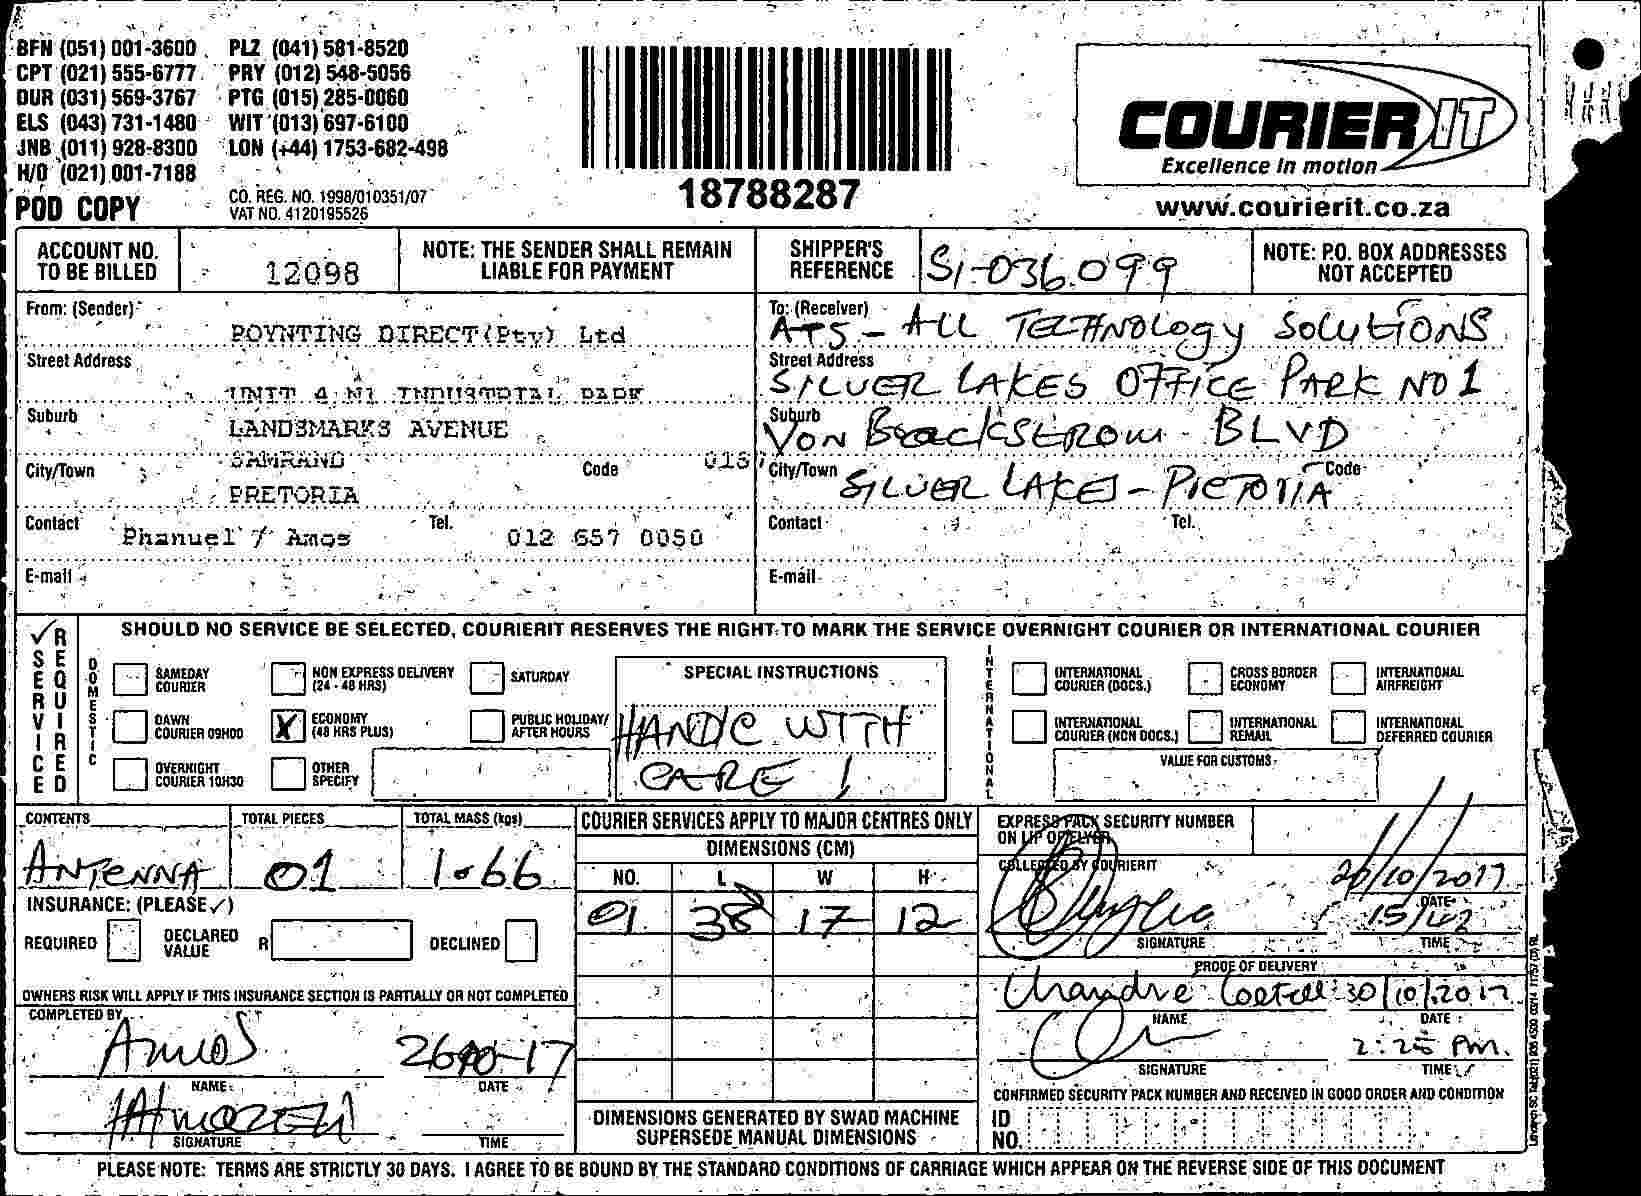 BFN (051) 001-3600 PLZ (041) 581-8520
CPT (021) 555-6777 PRY (012) 548-5056
DUR (031) 569-3767 PTG (015) 285-0060
ELS (043) 731-1480 WIT (013) 697-6100
JNB (011) 928-8300 LON (+44) 1753-682-498
H/O (021) 001-7188
POD COPY
CO. REG. NO. 1998/010351/07
VAT NO. 4120195526
18788287
COURIER IT
Excellence in motion
www.courierit.co.za
ACCOUNT NO. TO BE BILLED 12098
NOTE: THE SENDER SHALL REMAIN LIABLE FOR PAYMENT
SHIPPER'S REFERENCE SI-036099
NOTE: P.O. BOX ADDRESSES NOT ACCEPTED
From: (Sender)
POYNTING DIRECT (Pty) Ltd
Street Address
UNIT 4 N1 INDUSTRIAL PARK
Suburb
LANDSMARKS AVENUE
SAMRAND
City/Town Code
PRETORIA
Contact Phanuel / Amos Tel. 012 657 0050
E-mail
To: (Receiver)
ATS - ALL TECHNOLOGY SOLUTIONS
Street Address
SILVER LAKES OFFICE PARK NO 1
Suburb
VON BLVD
City/Town SILVER LAKES - Code
Contact Tel.
E-mail
SERVICE REQUIRED
SHOULD NO SERVICE BE SELECTED, COURIERIT RESERVES THE RIGHT TO MARK THE SERVICE OVERNIGHT COURIER OR INTERNATIONAL COURIER
DOMESTIC
SAMEDAY COURIER
NON EXPRESS DELIVERY (24 - 48 HRS)
SATURDAY
DAWN COURIER 09H00
X ECONOMY (48 HRS PLUS)
PUBLIC HOLIDAY/ AFTER HOURS
OVERNIGHT COURIER 10H30
OTHER SPECIFY
SPECIAL INSTRUCTIONS
WITH
CARE !
INTERNATIONAL
INTERNATIONAL COURIER (DOCS.)
CROSS BORDER ECONOMY
INTERNATIONAL AIRFREIGHT
INTERNATIONAL COURIER (NON DOCS.)
INTERNATIONAL REMAIL
INTERNATIONAL DEFERRED COURIER
VALUE FOR CUSTOMS
CONTENTS ANTENNA
TOTAL PIECES 01
TOTAL MASS (kgs) 1.66
INSURANCE: (PLEASE ✓)
REQUIRED DECLARED VALUE R DECLINED
OWNERS RISK WILL APPLY IF THIS INSURANCE SECTION IS PARTIALLY OR NOT COMPLETED
COMPLETED BY
Amos
NAME DATE
SIGNATURE TIME
COURIER SERVICES APPLY TO MAJOR CENTRES ONLY
DIMENSIONS (CM)
NO. L W H
01 38 17 12
DIMENSIONS GENERATED BY SWAD MACHINE SUPERSEDE MANUAL DIMENSIONS
EXPRESS PACK SECURITY NUMBER
ON LIP OF FLYER
COLLECTED BY COURIERIT
26/10/2017
DATE
15/42
SIGNATURE TIME
PROOF OF DELIVERY
Chandré 30/10/2017
NAME DATE
2:25 Pm.
SIGNATURE TIME
CONFIRMED SECURITY PACK NUMBER AND RECEIVED IN GOOD ORDER AND CONDITION
ID NO.
PLEASE NOTE: TERMS ARE STRICTLY 30 DAYS. I AGREE TO BE BOUND BY THE STANDARD CONDITIONS OF CARRIAGE WHICH APPEAR ON THE REVERSE SIDE OF THIS DOCUMENT